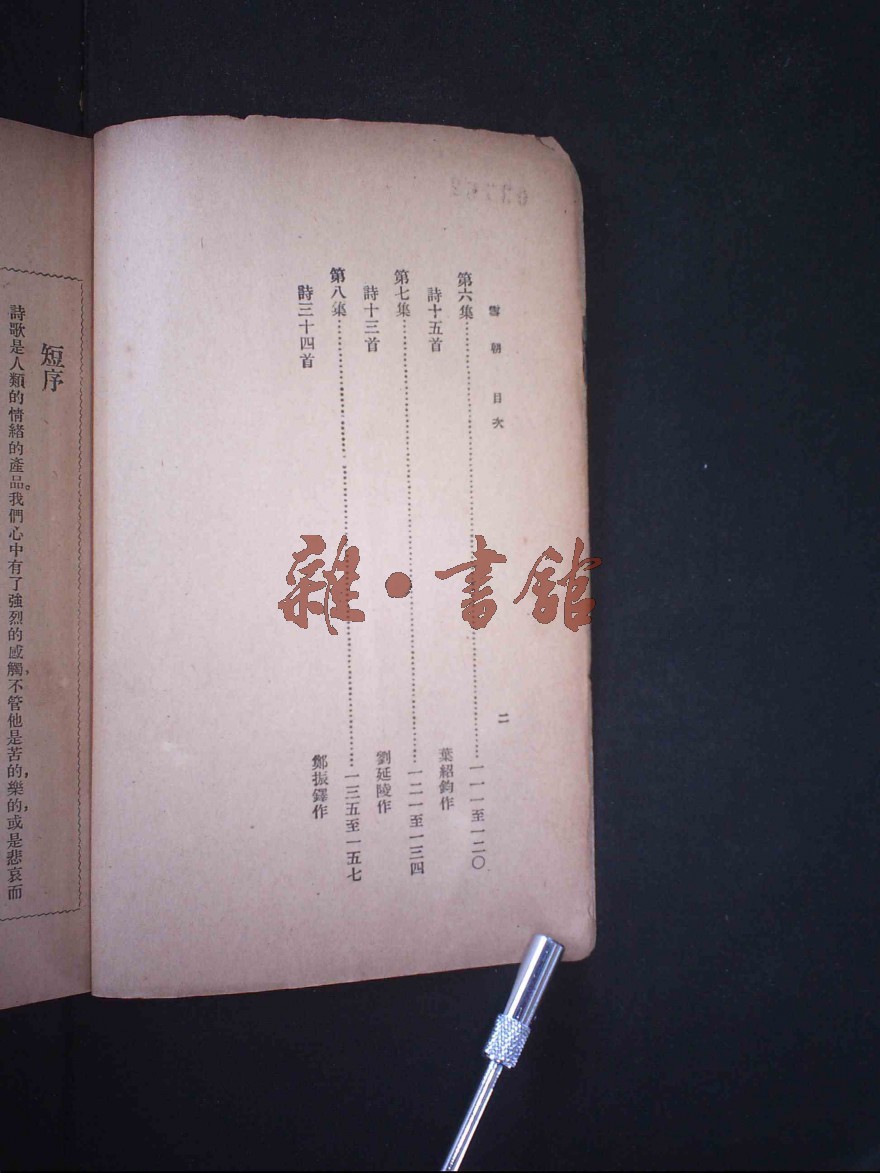 雪朝 目次 二
第六集……一一一至一二〇
詩十五首 葉紹鈞作
第七集……一二一至一三四
詩十三首 劉延陵作
第八集……一三五至一五七
詩三十四首 鄭振鐸作
短序
詩歌是人類的情緒的產品。我們心中有了強烈的感觸,不管他是苦的,樂的,或是悲哀而
雜·書館